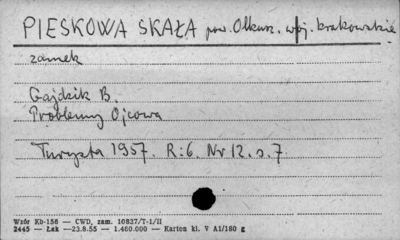 PIESKOWA SKAŁA pow. Olkusz. woj. krakowskie
zamek
Gajdzik B.
Problemy Ojcowa
Turysta 1957. R:6. Nr 12. s. 7
Wzór Kb-156 — CWD, zam. 10827/T-1/II
2445 — Łak —23.8.55 — 1.460.000 — Karton kl. V A1/160 g